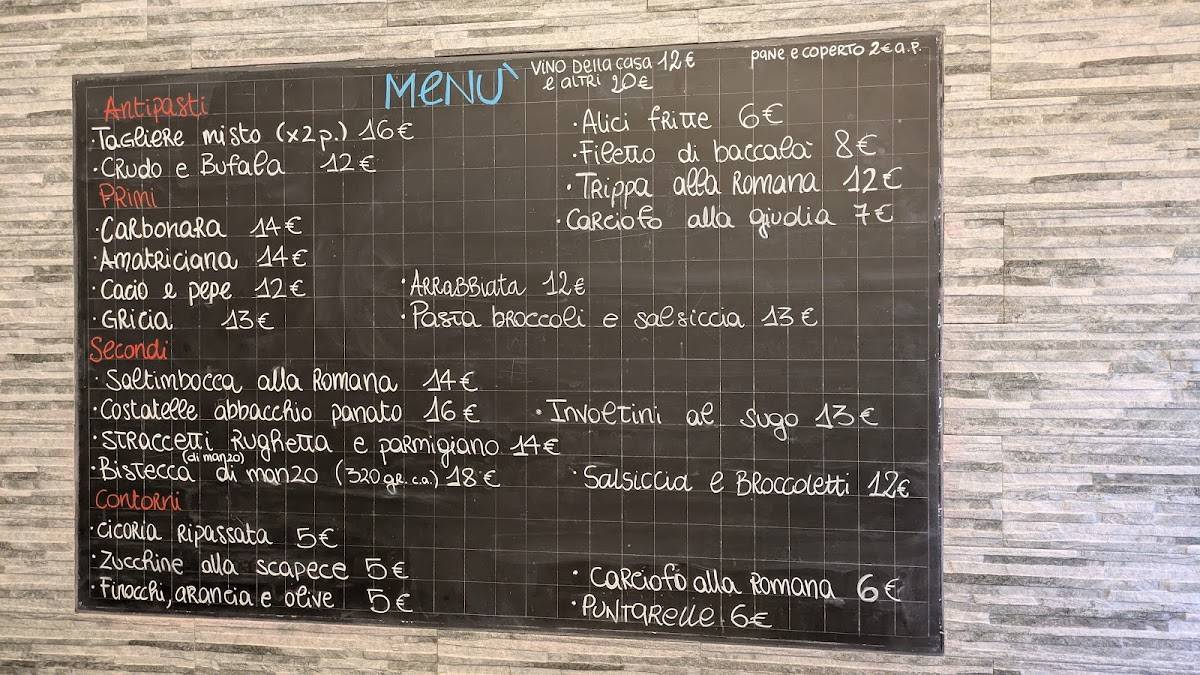 MENU'
VINO DELLA CASA 12€
E ALTRI 20€
PANE E COPERTO 2€ A.P.
Antipasti
Tagliere misto (x2 p.) 16€
· Crudo e Bufala 12€
· Alici fritte 6€
· Filetto di baccalà 8€
· Trippa alla Romana 12€
· Carciofo alla giudia 7€
Primi
· Carbonara 14€
· Amatriciana 14€
· Cacio e pepe 12€
· Gricia 13€
· Arrabbiata 12€
· Pasta broccoli e salsiccia 13€
Secondi
· Saltimbocca alla Romana 14€
· Costatelle abbacchio panato 16€
· Straccetti rughetta e parmigiano 14€
(di manzo)
· Bistecca di manzo (320gr. c.a.) 18€
· Involtini al sugo 13€
· Salsiccia e Broccoletti 12€
Contorni
· Cicoria ripassata 5€
· Zucchine alla scapece 5€
· Finocchi, arancia e olive 5€
· Carciofo alla Romana 6€
· Puntarelle 6€